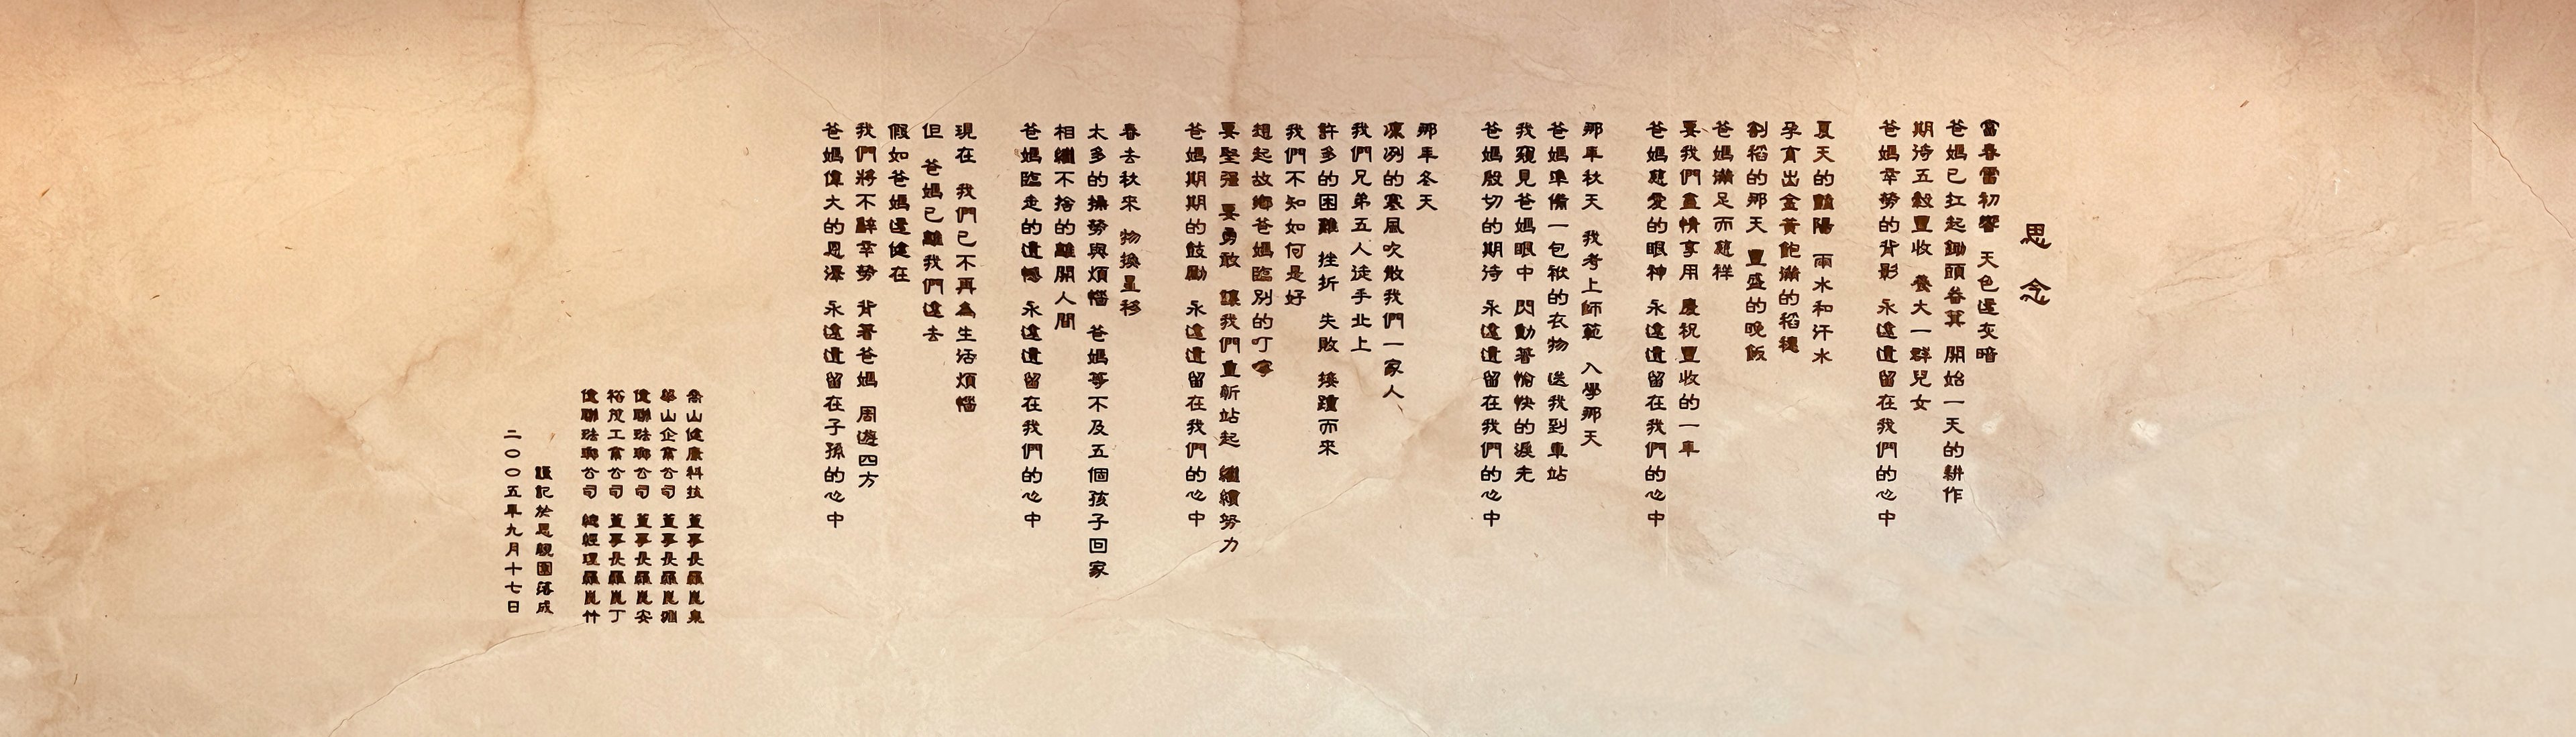 思念
當春雷初響 天色還灰暗
爸媽已扛起鋤頭畚箕 開始一天的耕作
期待五穀豐收 養大一群兒女
爸媽辛勞的背影 永遠遺留在我們的心中
夏天的豔陽 雨水和汗水
孕育出金黃飽滿的稻穗
割稻的那天 豐盛的晚飯
爸媽滿足而慈祥
要我們盡情享用 慶祝豐收的一年
爸媽慈愛的眼神 永遠遺留在我們的心中
那年秋天 我考上師範 入學那天
爸媽準備一包袱的衣物 送我到車站
我窺見爸媽眼中 閃動著愉快的淚光
爸媽殷切的期待 永遠遺留在我們的心中
那年冬天
凜冽的寒風吹散我們一家人
我們兄弟五人徒手北上
許多的困難 挫折 失敗 接踵而來
我們不知如何是好
想起故鄉爸媽臨別的叮嚀
要堅強 要勇敢 讓我們重新站起 繼續努力
爸媽期期的鼓勵 永遠遺留在我們的心中
春去秋來 物換星移
太多的操勞與煩惱 爸媽等不及五個孩子回家
相繼不捨的離開人間
爸媽臨走的遺憾 永遠遺留在我們的心中
現在 我們已不再為生活煩惱
但 爸媽已離我們遠去
假如爸媽還健在
我們將不辭辛勞 背著爸媽 周遊四方
爸媽偉大的恩澤 永遠遺留在子孫的心中
喬山健康科技 董事長羅崑泉
華山企業公司 董事長羅崑
億聯琺瑯公司 董事長羅崑安
裕茂工業公司 董事長羅崑丁
億聯琺瑯公司 總經理羅崑竹
謹記於思親園落成
二〇〇五年九月十七日